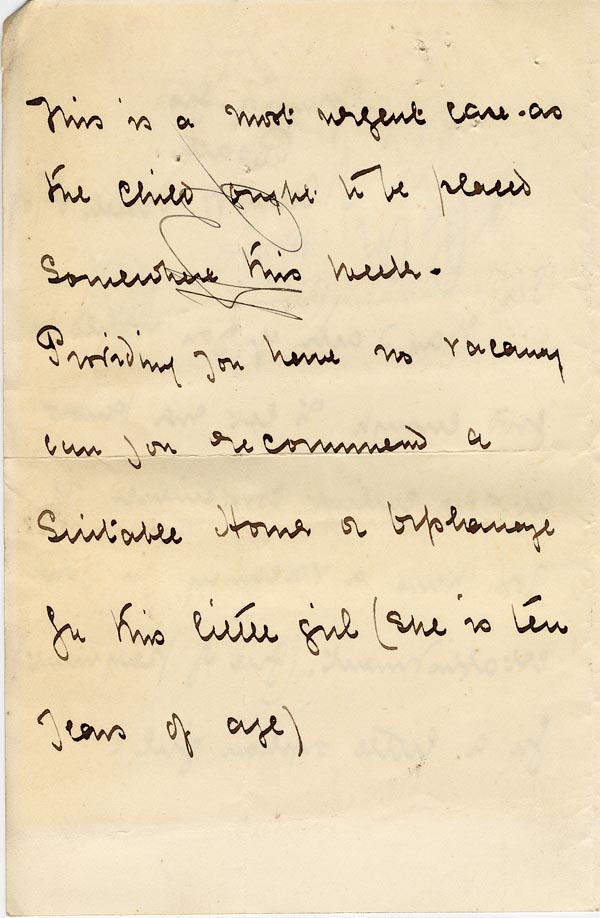 This is a most urgent case - as
the child ought to be placed
somewhere this week.
Providing you have no vacancy
can you recommend a
Suitable Home or Orphanage
for this little girl (She is ten
years of age)